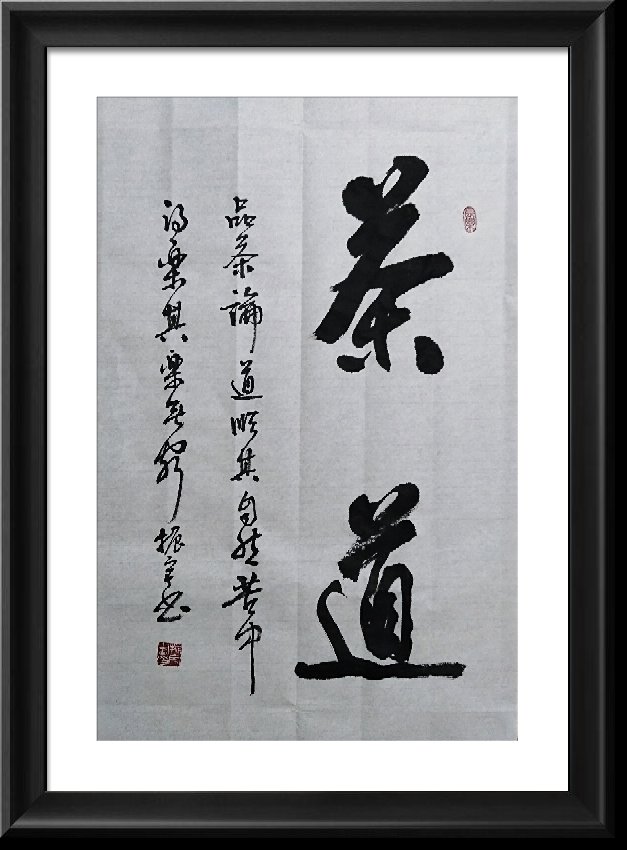 茶道
品茶論道順其自然苦中
得樂其樂無窮振宇書